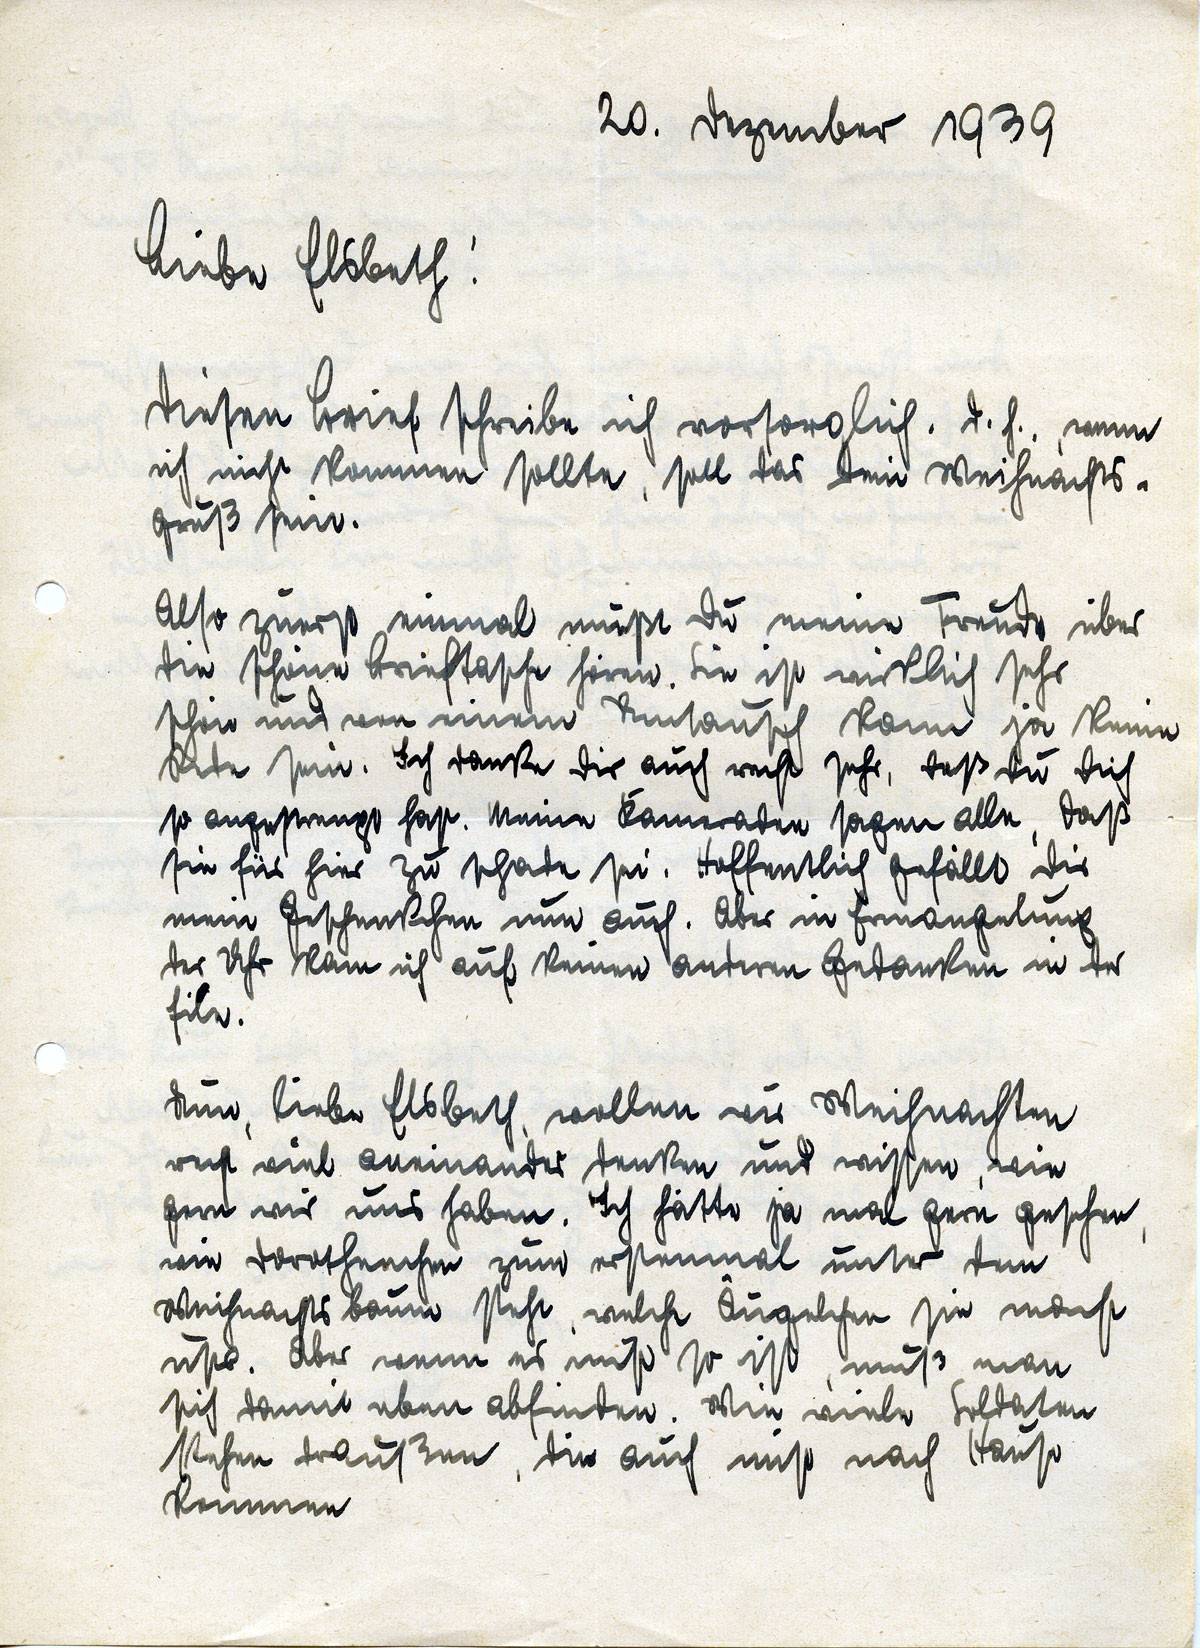 20. Dezember 1939
Liebe Elsbeth!
Diesen Brief schreibe ich vorsorglich. d. h., wenn
ich nicht kommen sollte, soll das Dein Weihnachts-
gruß sein.
Also zuerst einmal mußt Du meine Freude über
die schöne Brieftasche hören. Sie ist wirklich sehr
schön und von einem Umtausch kann ja keine
Rede sein. Ich danke Dir auch recht sehr, daß Du Dich
so angestrengt hast. Meine Kameraden sagen alle, daß
sie für hier zu schade sei. Hoffentlich gefällt Dir
mein Geschenkchen nun auch. Aber in Ermangelung
der Uhr kam ich auf keinen anderen Gedanken in der
Eile.
Nun, liebe Elsbeth, wollen wir Weihnachten
recht viel aneinander denken und wissen, wie
gern wir uns haben. Ich hätte ja mal gern gesehen,
wie Dorotheachen zum erstenmal unter dem
Weihnachtsbaum steht, welche Äugelchen sie macht
usw. Aber wenn es nicht so ist, muß man
sich damit eben abfinden. Wie viele Soldaten
stehen draußen, die auch nicht nach Hause
kommen